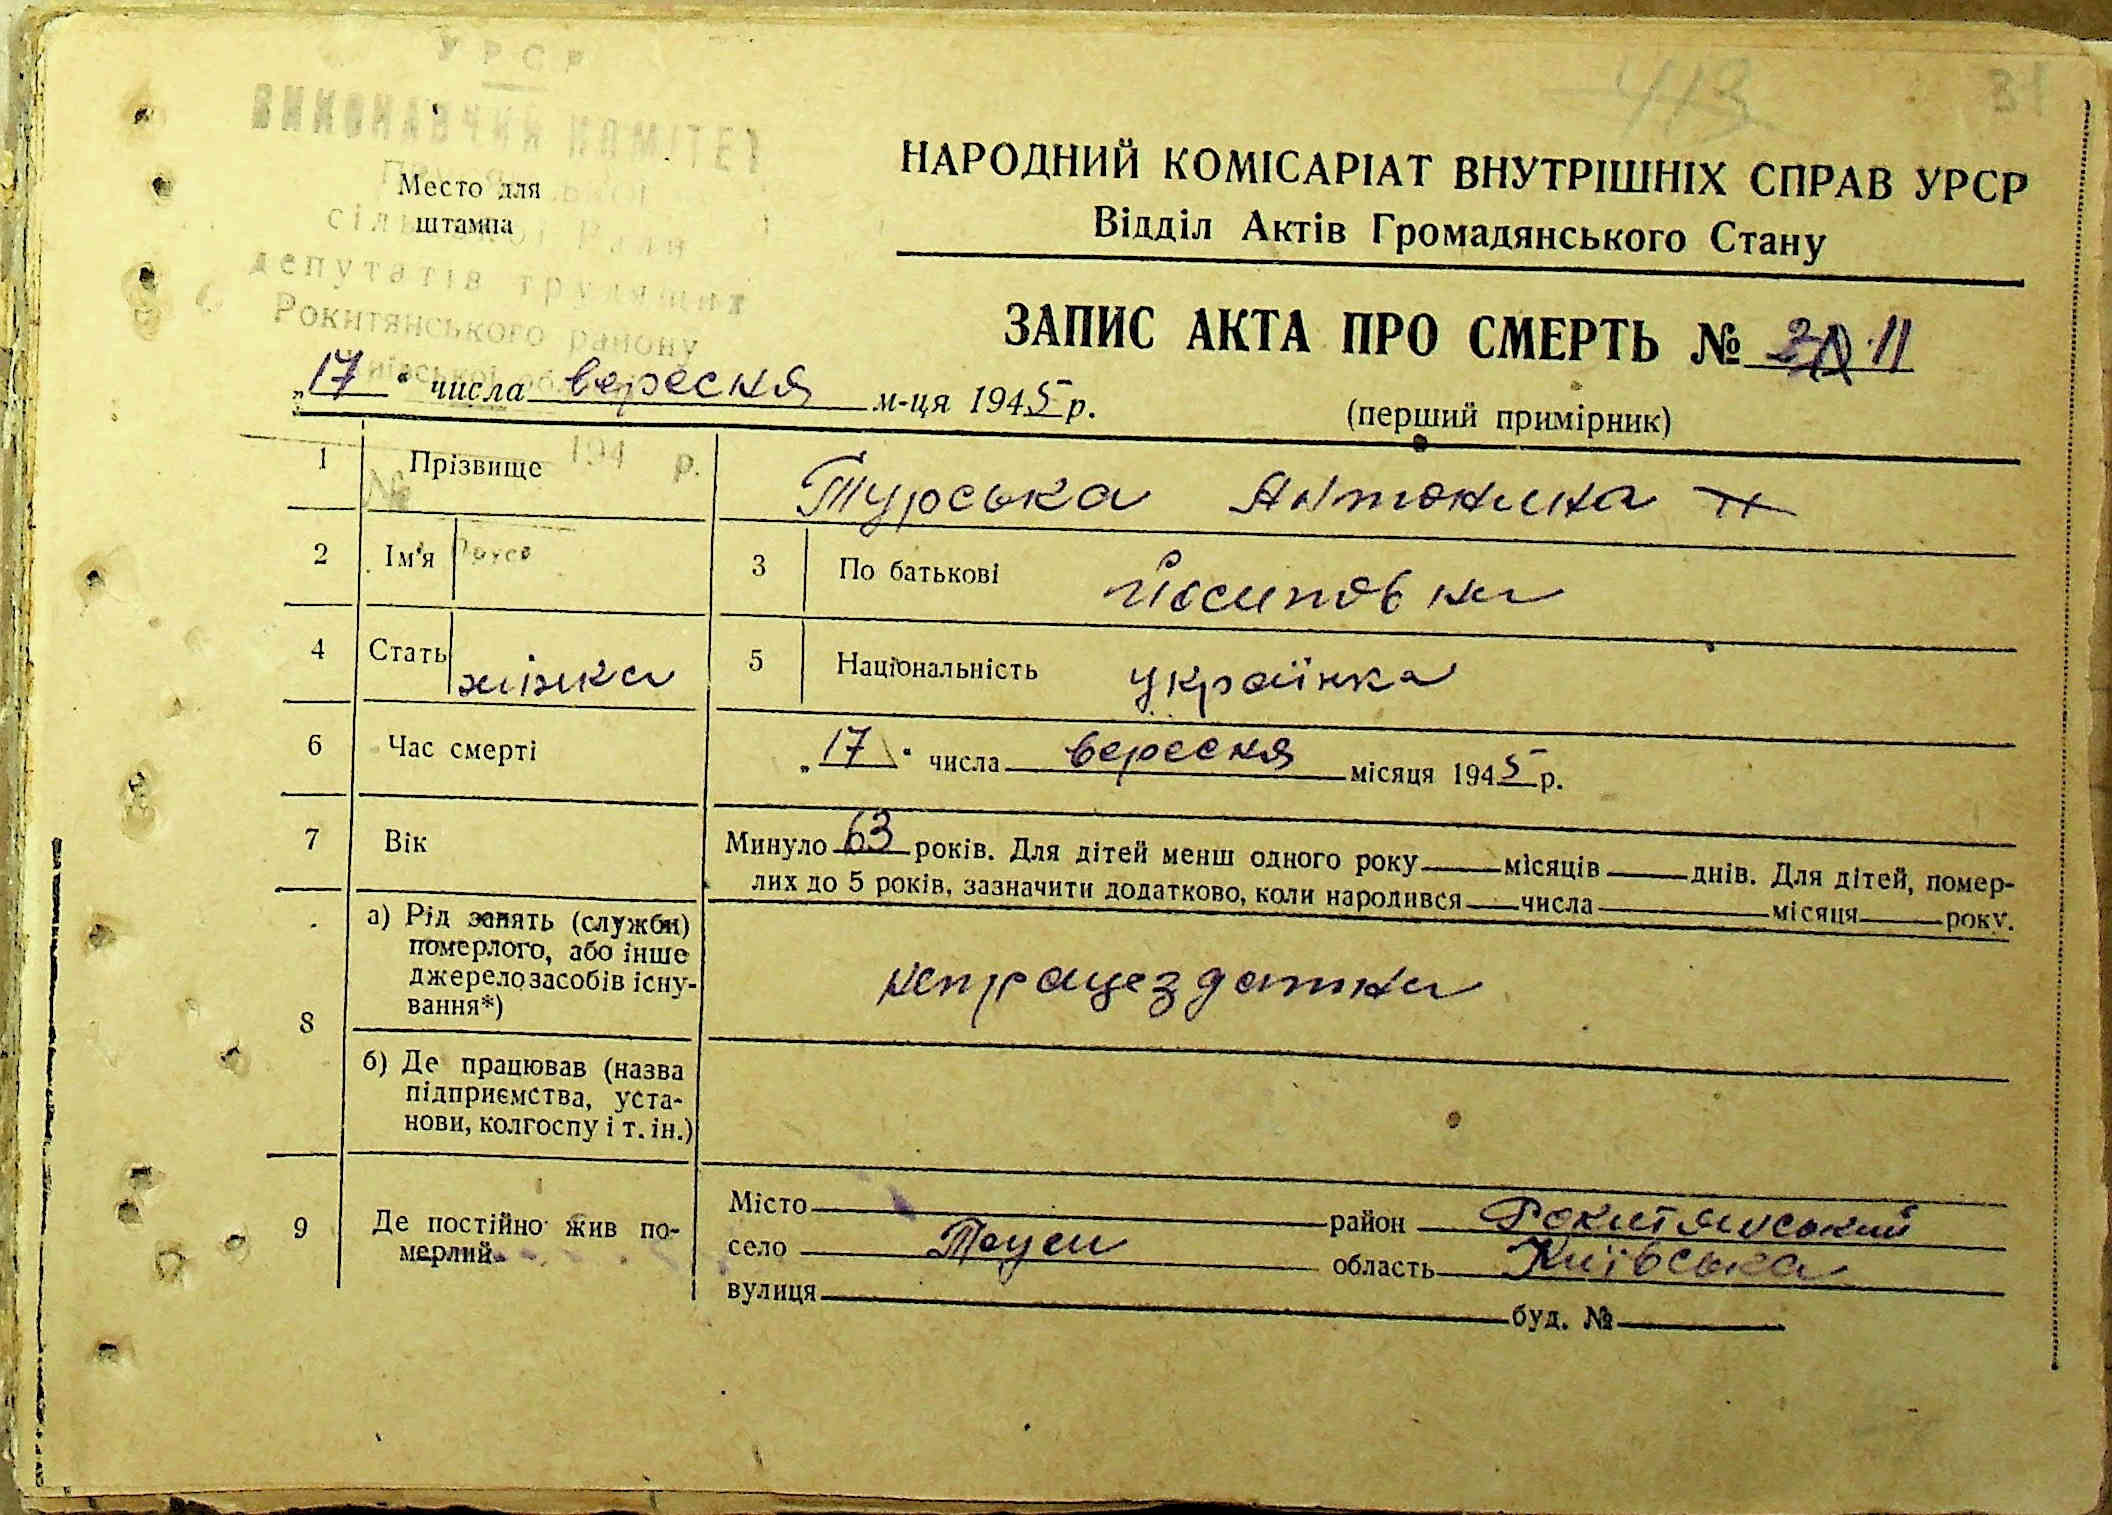 УРСР
413 31
ВИКОНАВЧИЙ КОМІТЕТ
Место для
штампа
сільської Ради
депутатів трудящих
Рокитянського району
НАРОДНИЙ КОМІСАРІАТ ВНУТРІШНІХ СПРАВ УРСР
Відділ Актів Громадянського Стану
ЗАПИС АКТА ПРО СМЕРТЬ № 11
„17“ числа вересня м-ця 1945 р.
(перший примірник)
194 р.
№
1 Прізвище Турська Антонина
2 Ім'я
3 По батькові Йосиповна
4 Стать жінка
5 Національність українка
6 Час смерті „17“ числа вересня місяця 1945 р.
7 Вік Минуло 63 років. Для дітей менш одного року місяців днів. Для дітей, помер-
лих до 5 років, зазначити додатково, коли народився числа місяця року.
8 а) Рід занять (служби)
померлого, або інше
джерело засобів існу-
вання*)
непрацездатна
б) Де працював (назва
підприємства, уста-
нови, колгоспу і т. ін.)
9 Де постійно жив по-
мерлий
Місто район Рокитянський
село область Київська
вулиця буд. №